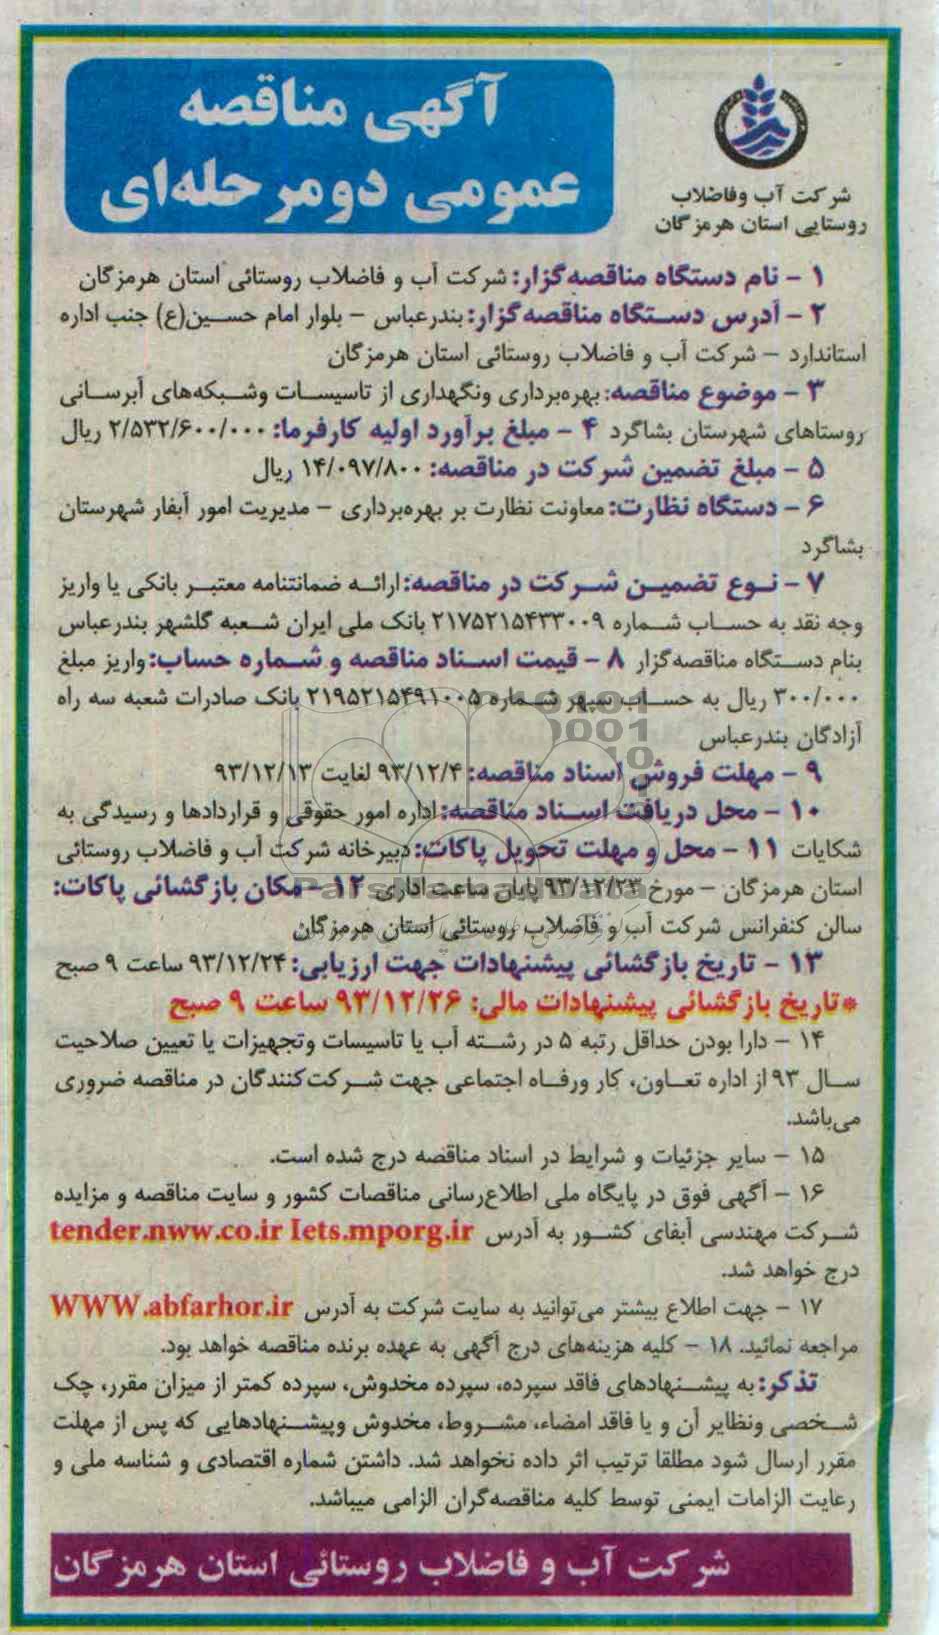 آگهی مناقصه
عمومی دومرحله‌ای
شرکت آب وفاضلاب
روستایی استان هرمزگان
۱ - نام دستگاه مناقصه‌گزار: شرکت آب و فاضلاب روستائی استان هرمزگان
۲ - آدرس دستگاه مناقصه‌گزار: بندرعباس - بلوار امام حسین(ع) جنب اداره
استاندارد - شرکت آب و فاضلاب روستائی استان هرمزگان
۳ - موضوع مناقصه: بهره‌برداری ونگهداری از تاسیسات وشبکه‌های آبرسانی
روستاهای شهرستان بشاگرد ۴ - مبلغ برآورد اولیه کارفرما: ۲/۵۳۲/۶۰۰/۰۰۰ ریال
۵ - مبلغ تضمین شرکت در مناقصه: ۱۴/۰۹۷/۸۰۰ ریال
۶ - دستگاه نظارت: معاونت نظارت بر بهره‌برداری - مدیریت امور آبفار شهرستان
بشاگرد
۷ - نوع تضمین شرکت در مناقصه: ارائه ضمانتنامه معتبر بانکی یا واریز
وجه نقد به حساب شماره ۲۱۷۵۲۱۵۴۳۳۰۰۹ بانک ملی ایران شعبه گلشهر بندرعباس
بنام دستگاه مناقصه‌گزار ۸ - قیمت اسناد مناقصه و شماره حساب: واریز مبلغ
۳۰۰/۰۰۰ ریال به حساب سپهر شماره ۲۱۹۵۲۱۵۴۹۱۰۰۵ بانک صادرات شعبه سه راه
آزادگان بندرعباس
۹ - مهلت فروش اسناد مناقصه: ۹۳/۱۲/۴ لغایت ۹۳/۱۲/۱۳
۱۰ - محل دریافت اسناد مناقصه: اداره امور حقوقی و قراردادها و رسیدگی به
شکایات ۱۱ - محل و مهلت تحویل پاکات: دبیرخانه شرکت آب و فاضلاب روستائی
استان هرمزگان - مورخ ۹۳/۱۲/۲۳ پایان ساعت اداری ۱۲ - مکان بازگشائی پاکات:
سالن کنفرانس شرکت آب و فاضلاب روستائی استان هرمزگان
۱۳ - تاریخ بازگشائی پیشنهادات جهت ارزیابی: ۹۳/۱۲/۲۴ ساعت ۹ صبح
*تاریخ بازگشائی پیشنهادات مالی: ۹۳/۱۲/۲۶ ساعت ۹ صبح
۱۴ - دارا بودن حداقل رتبه ۵ در رشته آب یا تاسیسات وتجهیزات یا تعیین صلاحیت
سال ۹۳ از اداره تعاون، کار ورفاه اجتماعی جهت شرکت‌کنندگان در مناقصه ضروری
می‌باشد.
۱۵ - سایر جزئیات و شرایط در اسناد مناقصه درج شده است.
۱۶ - آگهی فوق در پایگاه ملی اطلاع‌رسانی مناقصات کشور و سایت مناقصه و مزایده
شرکت مهندسی آبفای کشور به آدرس tender.nww.co.ir Iets.mporg.ir
درج خواهد شد.
۱۷ - جهت اطلاع بیشتر می‌توانید به سایت شرکت به آدرس WWW.abfarhor.ir
مراجعه نمائید. ۱۸ - کلیه هزینه‌های درج آگهی به عهده برنده مناقصه خواهد بود.
تذکر: به پیشنهادهای فاقد سپرده، سپرده مخدوش، سپرده کمتر از میزان مقرر، چک
شخصی ونظایر آن و یا فاقد امضاء، مشروط، مخدوش وپیشنهادهایی که پس از مهلت
مقرر ارسال شود مطلقا ترتیب اثر داده نخواهد شد. داشتن شماره اقتصادی و شناسه ملی و
رعایت الزامات ایمنی توسط کلیه مناقصه‌گران الزامی میباشد.
شرکت آب و فاضلاب روستائی استان هرمزگان
ParsNamadData